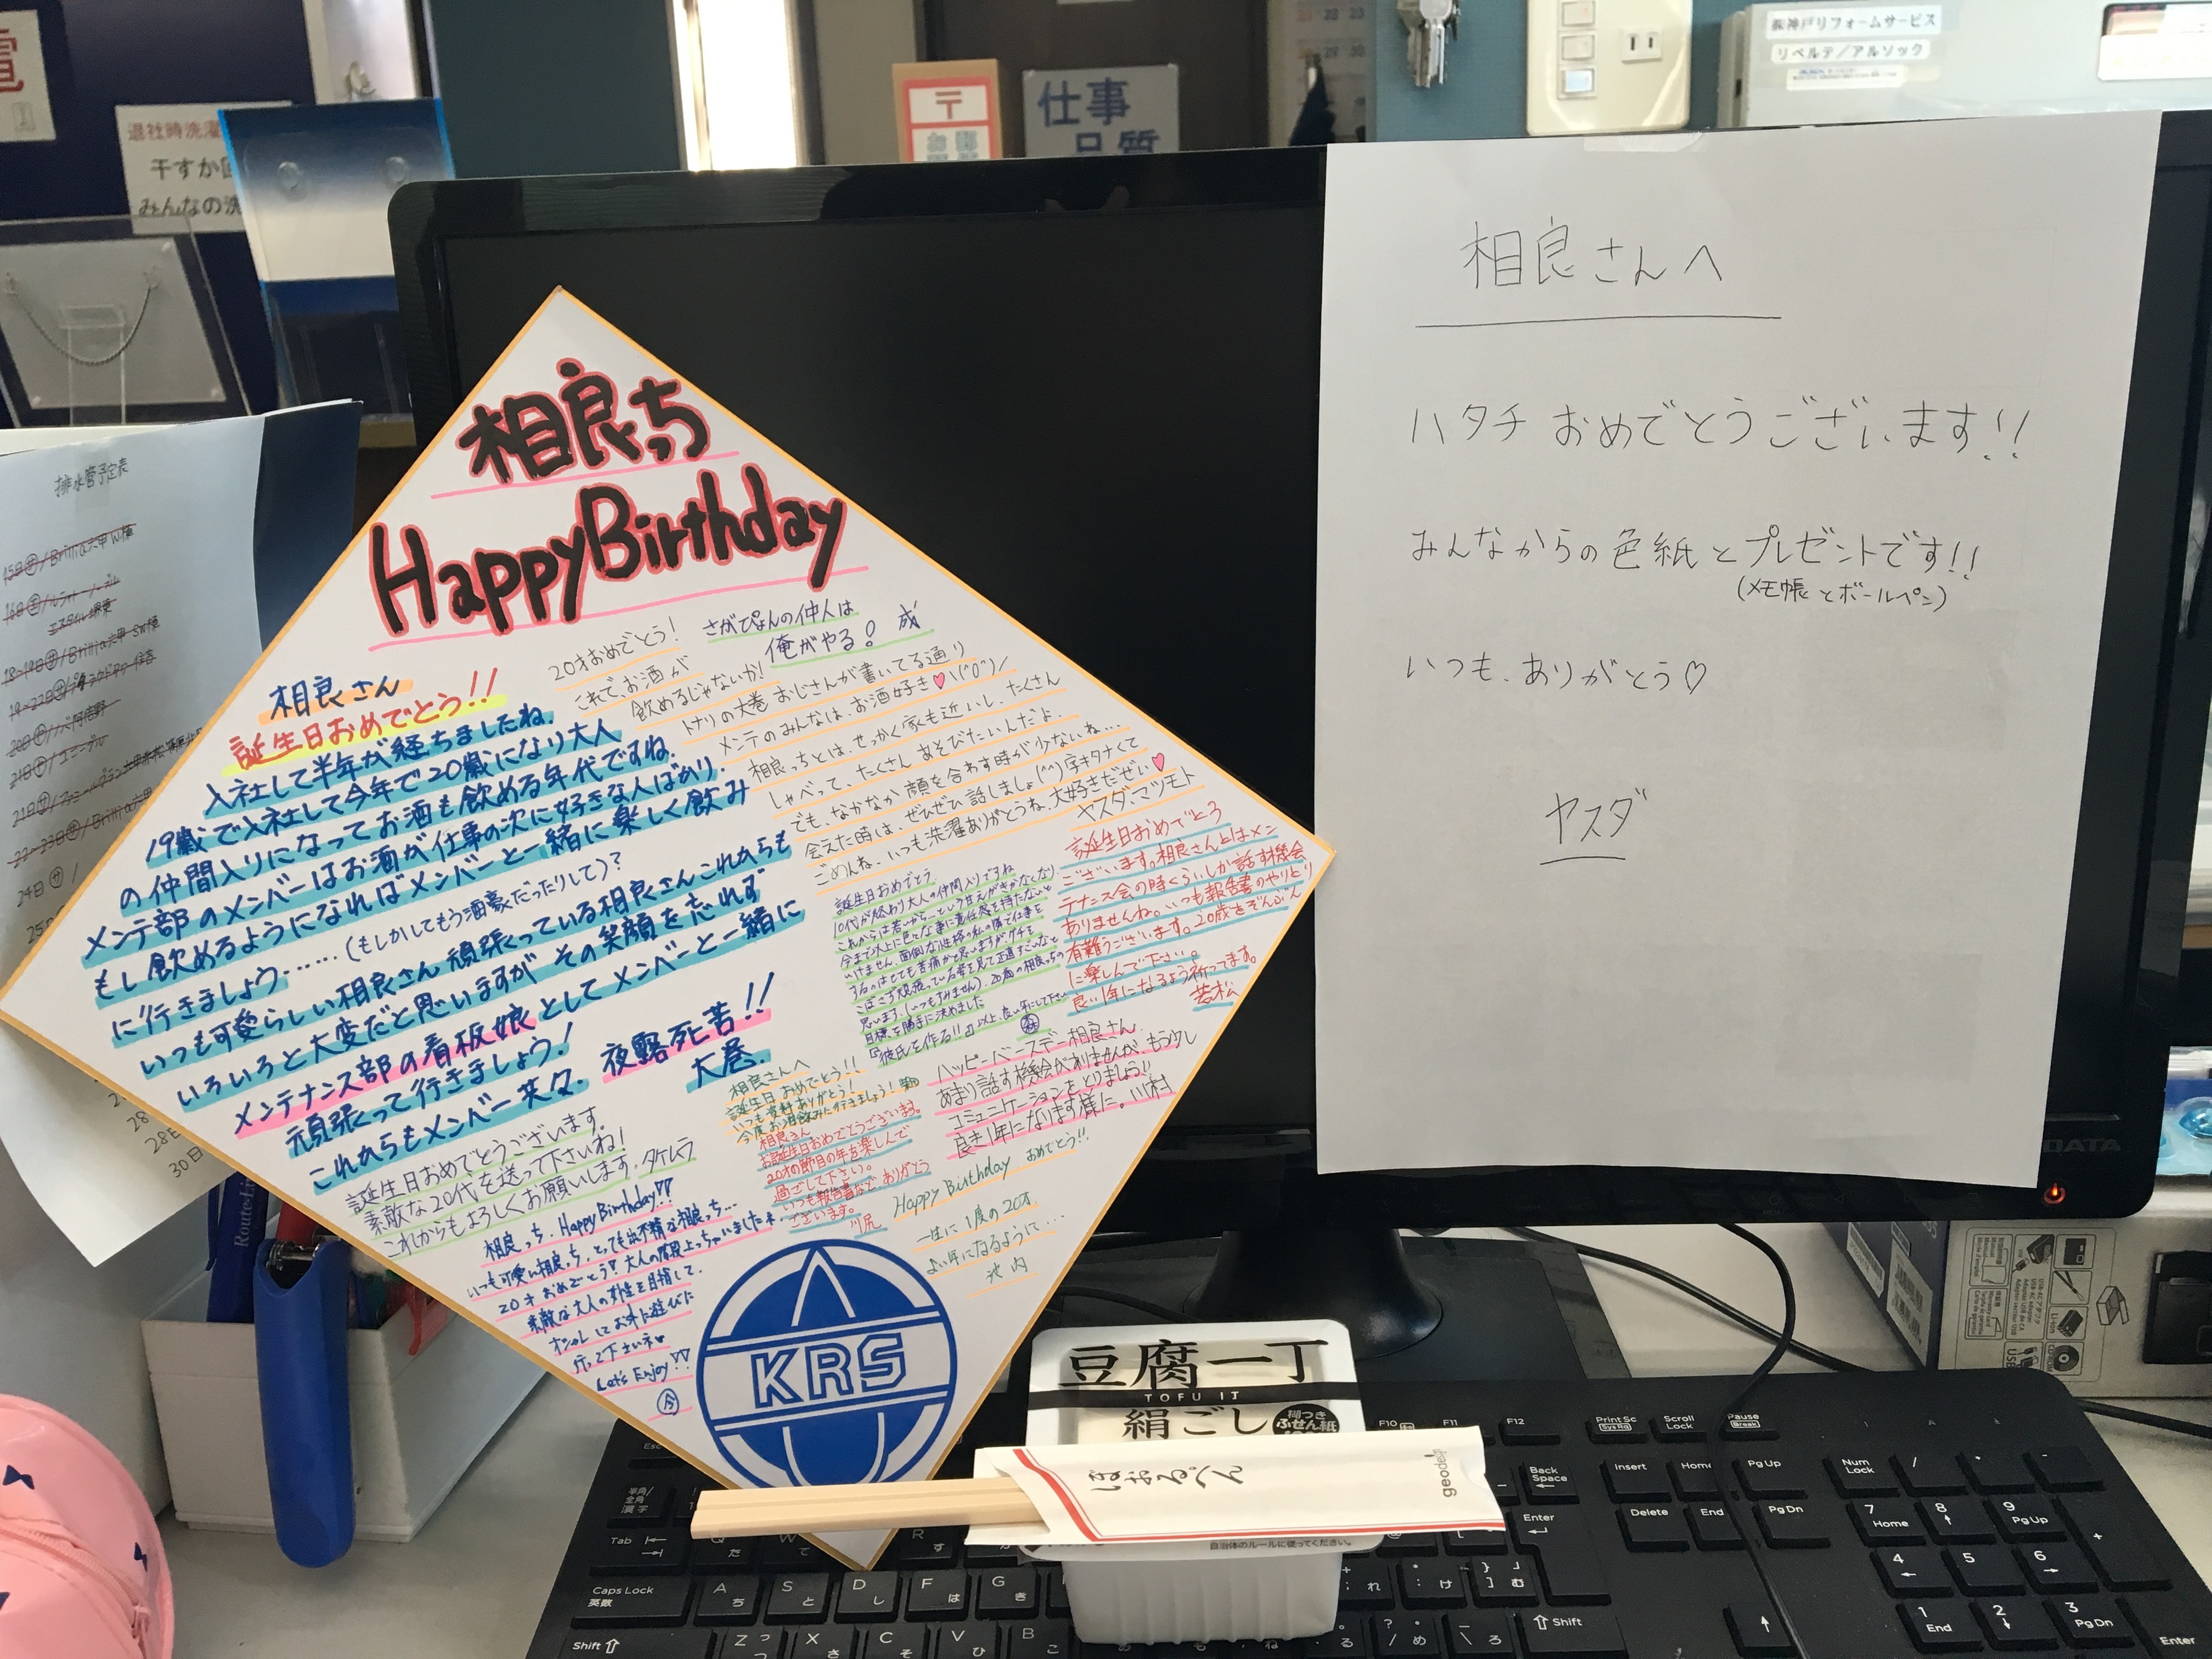 電
退社時洗濯
干すか
みんなの洗
〒
お
仕事
品質
22 23
29 30
㈱神戸リフォームサービス
リベルテ/アルソック
排水管予定表
24日
28
28日
30日
相良っち
Happy Birthday
相良さん
誕生日おめでとう!!
入社して半年が経ちましたね.
19歳で入社して今年で20歳になり大人
の仲間入りになってお酒も飲める年代ですね.
メンテ部のメンバーはお酒が仕事の次に好きな人ばかり.
もし飲めるようになればメンバーと一緒に楽しく飲み
に行きましょう……(もしかしてもう酒豪だったりして)?
いつも可愛らしい相良さん 頑張っている相良さんこれからも
いろいろと大変だと思いますが その笑顔を忘れず
メンテナンス部の看板娘としてメンバーと一緒に
頑張って行きましょう!
これからもメンバー共々. 夜露死苦!!
大巻.
さがぴょんの仲人は
俺がやる! 成
20才おめでとう!
これで、お酒が
飲めるじゃないか!
トナリの大巻おじさんが書いてる通り
メンテのみんなは、お酒好き♥\(^o^)/
相良っちとは、せっかく家も近いし、たくさん
しゃべって、たくさん あそびたいんだよ.
でも、なかなか顔を合わす時が少ないね…
会えた時は、ぜひぜひ話しましょ(^^)字キタナくて
ごめんね、いつも洗濯ありがとうね、大好きだぜい♥
ヤスダ、マツモト
誕生日おめでとう
10代が終わり大人の仲間入りですね
これからは若いから…という甘えがきかなくなり
今まで以上に色々な事に責任感を持たないと
いけません。面倒な性格の私の隣で仕事を
するのはとても苦痛かと思いますが、グチを
こぼさず頑張っている姿を見て正直すごいなと
思います。(いつもすみません). 20歳の相良っちの
目標を勝手に決めました
『彼氏を作る!!』以上、良い年にして下さい
誕生日おめでとう
ございます。相良さんとはメン
テナンス会の時くらいしか話す機会
ありませんね。いつも報告書のやりとり
有難うございます。20歳をぞんぶん
に楽しんで下さい。
良い1年になるよう祈ってます。
若松
ハッピーバースデー相良さん.
あまり話す機会がありませんが、もう少し
コミュニケーションをとりましょう!!
良き1年になります様に。川村
相良さんへ
誕生日おめでとう!!
いつも資料ありがとう!
今度お酒飲みに行きましょう!
相良さん
お誕生日おめでとうございます。
20才の節目の年を楽しんで
過ごして下さい。
いつも報告書など ありがとう
ございます。 川尻
誕生日おめでとうございます。
素敵な20代を送って下さいね!
これからもよろしくお願いします. タケムラ
相良っち. Happy Birthday♡♡
いつも可愛い相良っち. とっても出不精な相良っち…
20才おめでとう! 大人の階段上っちゃいましたネ.
素敵な大人の女性を目指して.
オシャレしてお外に遊びに
行って下さいネ♥
Let's Enjoy♡♡
今
Happy Birthday おめでとう!!
一生に1度の20才.
よい年になるように…
池内
KRS
相良さんへ
ハタチ おめでとうございます!!
みんなからの色紙とプレゼントです!!
(メモ帳とボールペン)
いつも、ありがとう♡
ヤスダ
豆腐一丁
TOFU IT
絹ごし
糊つき
ふせん紙
ぼおるぺん
geodesi
自治体のルールに従ってください。
Route-Li
F10 F11 F12 Print Sc SysRq Scroll Lock Pause Break
Back Space Insert Home PgUp Num Lock / * -
Enter Delete End PgDn 7 Home 8 9 PgUp +
半角/全角 漢字
Tab Q た W て R す
4 5 6
Caps Lock 英数 A ち S と D し F は G き
Shift 1 End 2 3 PgDn
Shift Z つ X さ C そ V ひ B こ
Enter